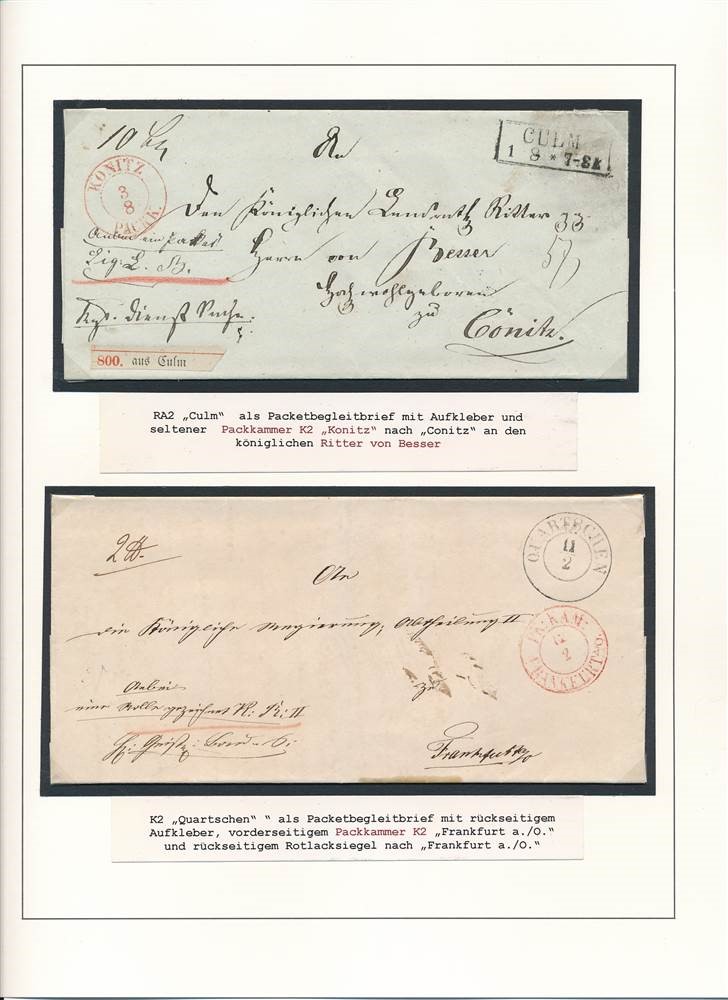 10
An
CULM
1 8 * 7-8
KONITZ
3
8
PACKK.
Den Königlichen Landrath Ritter
33
Anbei ein Packet
Herrn von Besser
Sig: L. B.
Hochwohlgeboren
zu
Kgl. Dienst Sache.
Cönitz.
800. aus Culm
RA2 „Culm“ als Packetbegleitbrief mit Aufkleber und
seltener Packkammer K2 „Konitz“ nach „Conitz“ an den
königlichen Ritter von Besser
QUARTSCHEN
11
2
An
die Königliche Regierung, Abtheilung II
PK: KAM:
2
FRANKFURT a/O.
Anbei
zu
eine Rolle gezeichnet K: R: II
Frankfurt a/o
K2 „Quartschen“ “ als Packetbegleitbrief mit rückseitigem
Aufkleber, vorderseitigem Packkammer K2 „Frankfurt a./O.“
und rückseitigem Rotlacksiegel nach „Frankfurt a./O.“